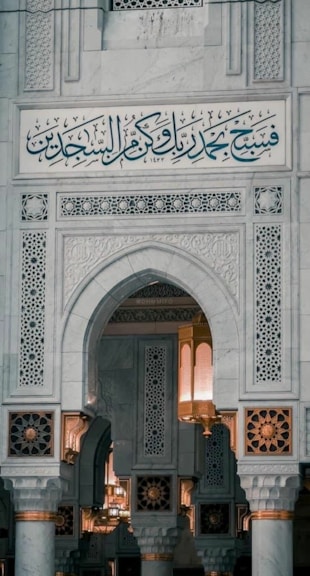 فَسَبِّحْ بِحَمْدِ رَبِّكَ وَكُن مِّنَ السَّاجِدِينَ
١٤٣٢